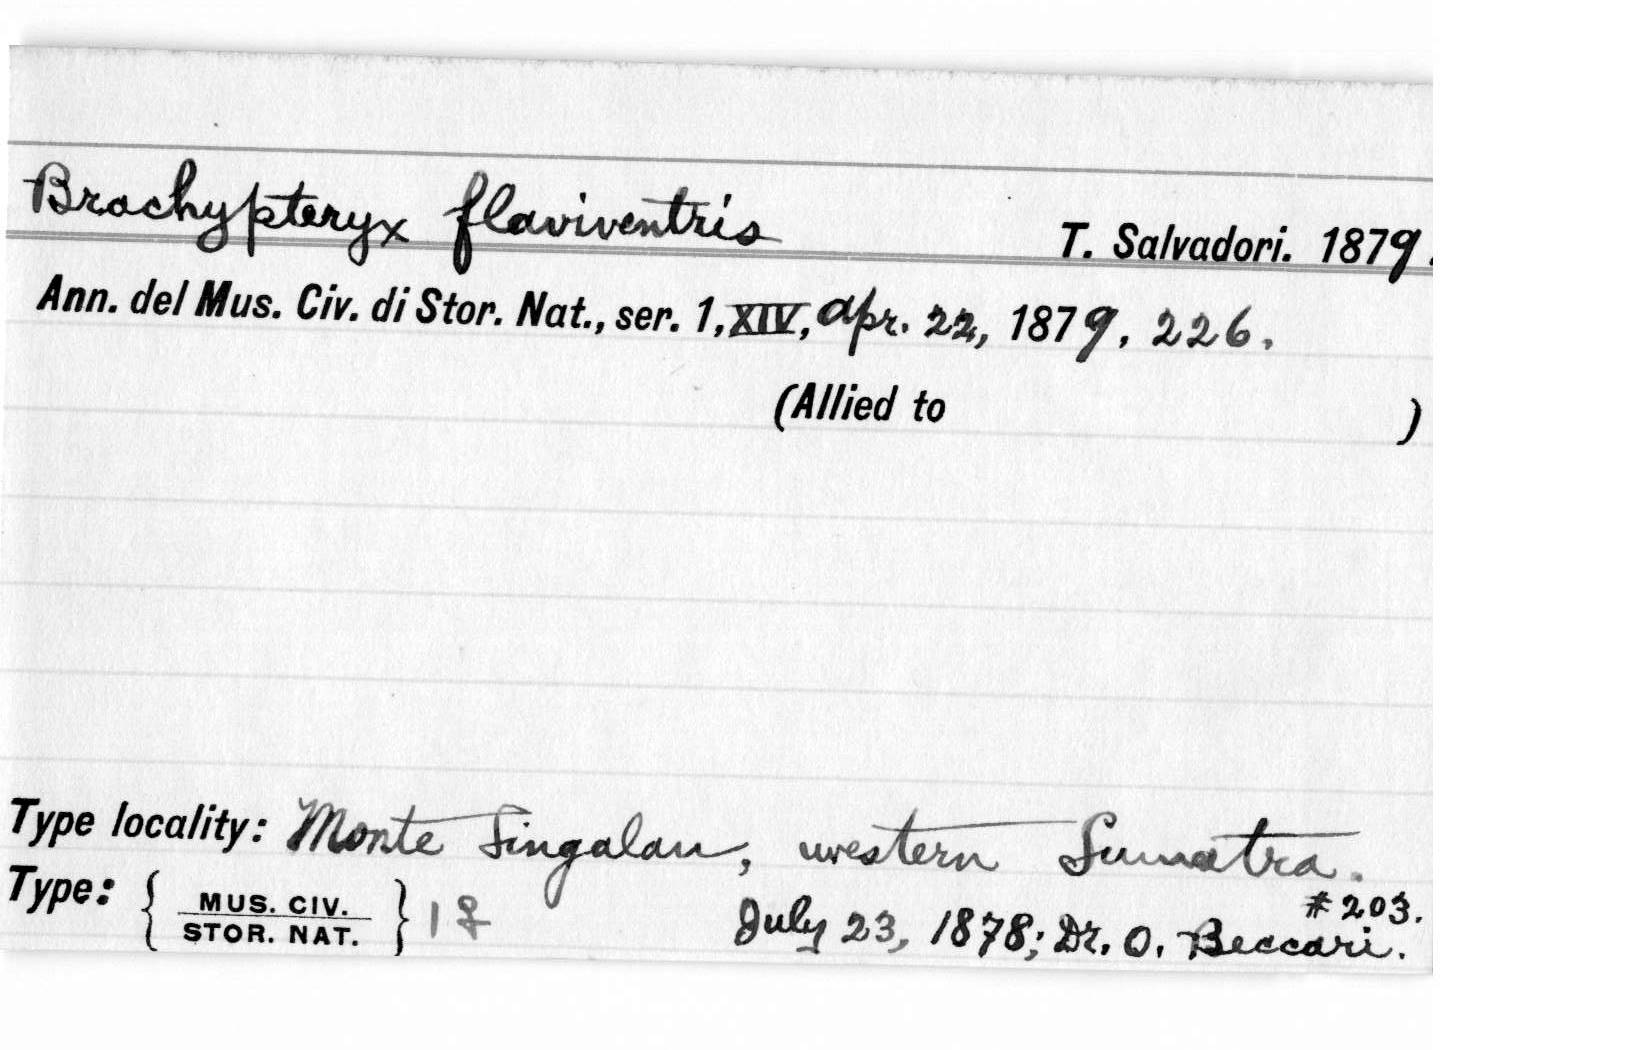 Brachypteryx flaviventris T. Salvadori. 1879.
Ann. del Mus. Civ. di Stor. Nat., ser. 1, XIV, Apr. 22, 1879, 226.
(Allied to )
Type locality: Monte Singalan, western Sumatra.
#203.
Type: { MUS. CIV. / STOR. NAT. } 1 ♀ July 23, 1878; Dr. O. Beccari.